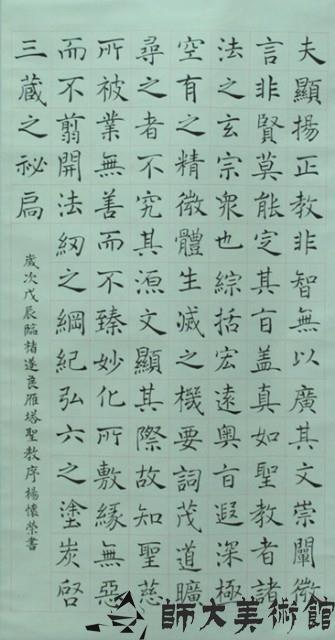 夫顯揚正教非智無以廣其文崇闡微
言非賢莫能定其旨盖真如聖教者諸
法之玄宗衆也綜括宏遠奧旨遐深極
空有之精微體生滅之機要詞茂道曠
尋之者不究其源文顯其際故知聖慈
所被業無善而不臻妙化所敷緣無惡
而不翦開法網之綱紀弘六之塗炭啓
三藏之祕扃
歲次戊辰臨褚遂良雁塔聖教序楊懷榮書
師大美術館